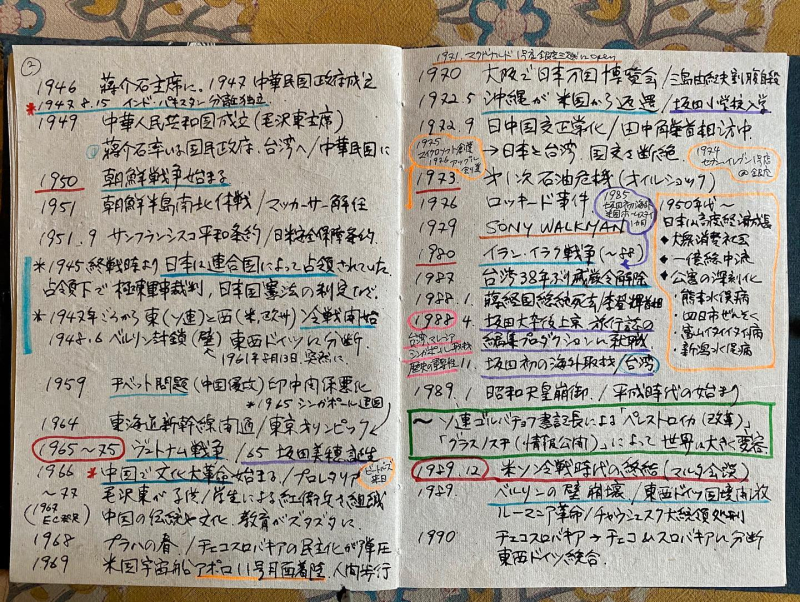 ②
1946 蒋介石主席に。1947 中華民国政府成立
*1947.8.15 インド・パキスタン分離独立
1949 中華人民共和国成立(毛沢東主席)
蒋介石率いる国民政府、台湾へ/中華民国に
1950 朝鮮戦争始まる
1951 朝鮮半島南北休戦/マッカーサー解任
1951.9 サンフランシスコ平和条約/日米安全保障条約.
*1945終戦時より日本は連合国によって占領されていた
占領下で極東軍事裁判,日本国憲法の制定など.
*1947年ごろから東(ソ連)と西(米,欧州)冷戦開始
1948.6 ベルリン封鎖(壁)東西ドイツに分断
1961年8月13日 突然に.
1959 チベット問題(中国優文)印中関係悪化
*1965 シンガポール建国
1964 東海道新幹線開通/東京オリンピック
1965〜75 ベトナム戦争/65 坂田美穂誕生
1966 *中国で文化大革命始まる/プロレタリア
ビートルズ来日
〜77 毛沢東が子供/学生による紅衛兵を組織
(1967 EC発足) 中国の伝統や文化.教育がズタズタに.
1968 プラハの春/チェコスロバキアの民主化が弾圧
1969 米国宇宙船アポロ11号月面着陸.人間歩行
1971.マクドナルド1号店銀座三越にopen
1970 大阪で日本万国博覧会/三島由紀夫割腹自殺
1972.5 沖縄が米国から返還/坂田小学校入学
1972.9 日中国交正常化/田中角榮首相訪中
→日本と台湾.国交を断絶.
1975 マイクロソフト創業
1976 アップル創業
1974 セブンイレブン1号店
1973 第1次石油危機(オイルショック)
1976 ロッキード事件
1985 坂田初の海外 米国ホームステイ1ヵ月
1979 SONY WALKMAN
1980 イラン・イラク戦争(〜88)
1987 台湾38年ぶり戒厳令解除
1988.1. 蒋経国総統死去/李登輝首相
1988.4. 坂田大卒後上京 旅行誌の
編集プロダクションに就職
台湾,マレーシア シンガポール取材 歴史の重要性
11. 坂田初の海外取材/台湾
1950年代〜
日本は高度経済成長
◆大衆消費社会
◆一億総中流
◆公害の深刻化
・熊本水俣病
・四日市ぜんそく
・富山イタイイタイ病
・新潟水俣病
1989.1 昭和天皇崩御/平成時代の始まり
〜ソ連ゴルバチョフ書記長による「ペレストロイカ(改革)」
「グラスノスチ(情報公開)」によって世界は大きく変容
1989.12 米ソ冷戦時代の終結(マルタ会談)
1989. ベルリンの壁崩壊/東西ドイツ国境開放
ルーマニア革命/チャウシェスク大統領処刑
1990 チェコスロバキア→チェコとスロバキアに分断
東西ドイツ統合.